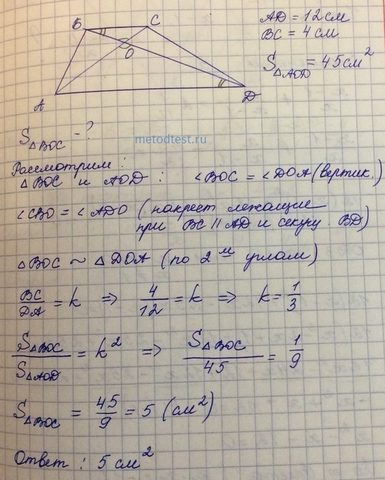 Б C
O
A D
AD = 12 см
BC = 4 см
S△AOD = 45 см²
S△BOC - ?
metodtest.ru
Рассмотрим:
△BOC и AOD : ∠BOC = ∠DOA (вертик.)
∠CBO = ∠ADO (накрест лежащие
при BC || AD и секущ BD)
△BOC ~ △DOA (по 2м углам)
BC/DA = k ⇒ 4/12 = k ⇒ k = 1/3
S△BOC/S△AOD = k² ⇒ S△BOC/45 = 1/9
S△BOC = 45/9 = 5 (см²)
Ответ : 5 см²